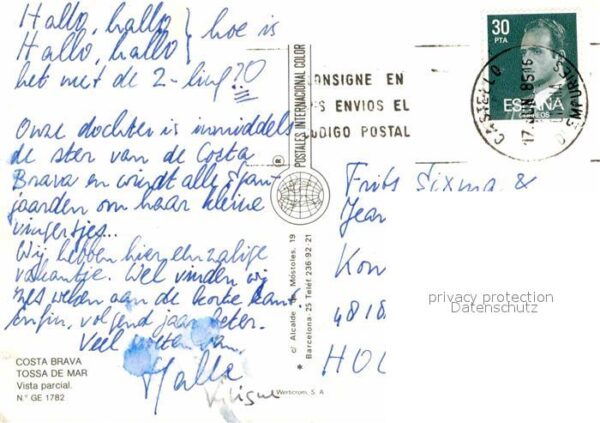 Hallo, hallo } hoe is
Hallo, hallo
het met de 2-ling?
Onze dochter is inmiddels
de ster van de Costa
Brava en windt alle Span-
jaarden om haar kleine
vingertjes...
Wij hebben hier een zalige
vakantie. Wel vinden wij
weken aan de korte kant
enfin, volgend jaar beter.
Veel
COSTA BRAVA
TOSSA DE MAR
Vista parcial.
N.° GE 1782
POSTALES INTERNACIONAL COLOR
®
c/ Alcalde Móstoles, 19
Barcelona 25 Teléf 236-92-21
S. A.
CONSIGNE EN
ENVIOS EL
CODIGO POSTAL
30
PTA
ESPAÑA
CORREOS
CASTELLO D'EMPURIES
17 85
Frits Sixma &
Jear
Kon
4818
HOL
privacy protection
Datenschutz